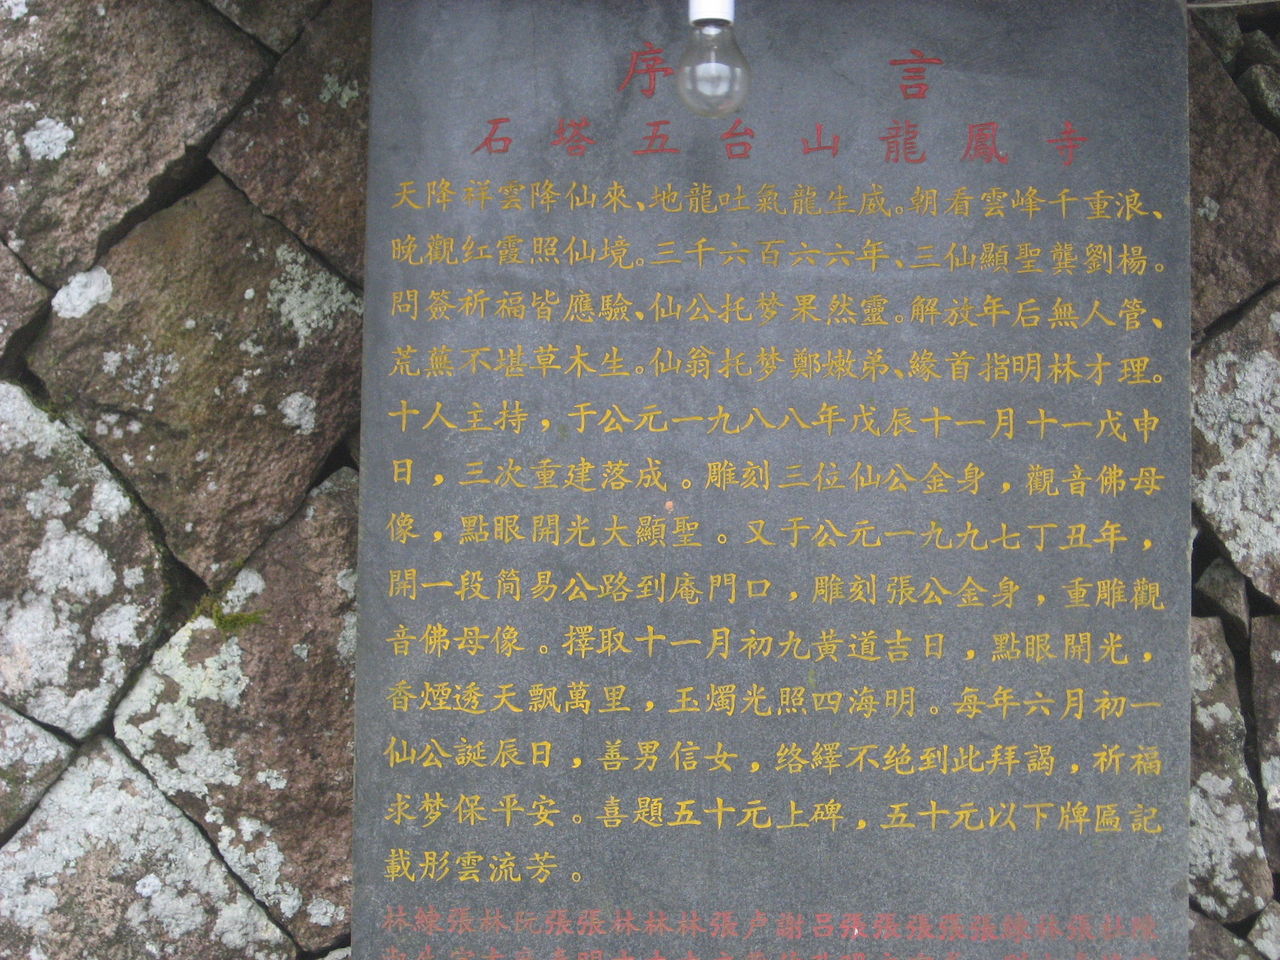 序言
石塔五台山龍鳳寺
天降祥雲降仙來、地龍吐氣龍生威。朝看雲峰千重浪、
晚觀红霞照仙境。三千六百六六年、三仙顯聖龔劉楊。
問簽祈福皆應驗、仙公托梦果然靈。解放年后無人管、
荒蕪不堪草木生。仙翁托梦鄭嫩弟、緣首指明林才理。
十人主持，于公元一九八八年戊辰十一月十一戊申
日，三次重建落成。雕刻三位仙公金身，觀音佛母
像，點眼開光大顯聖。又于公元一九九七丁丑年，
開一段简易公路到庵門口，雕刻張公金身，重雕觀
音佛母像。擇取十一月初九黄道吉日，點眼開光，
香煙透天飘萬里，玉燭光照四海明。每年六月初一
仙公誕辰日，善男信女，络繹不绝到此拜謁，祈福
求梦保平安。喜題五十元上碑，五十元以下牌區記
載彤雲流芳。
林練張林阮張張林林林張卢謝吕張張張張張練林張杜陳